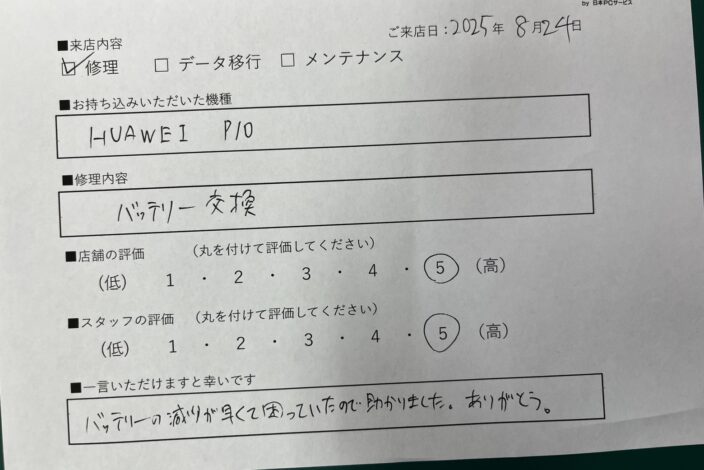 by 日本PCサービス
ご来店日：2025年 8月24日
■来店内容
☑ 修理 □ データ移行 □ メンテナンス
■お持ち込みいただいた機種
HUAWEI P10
■修理内容
バッテリー交換
■店舗の評価 （丸を付けて評価してください）
（低） 1 ・ 2 ・ 3 ・ 4 ・ 5 （高）
■スタッフの評価 （丸を付けて評価してください）
（低） 1 ・ 2 ・ 3 ・ 4 ・ 5 （高）
■一言いただけますと幸いです
バッテリーの減りが早くて困っていたので助かりました。ありがとう。